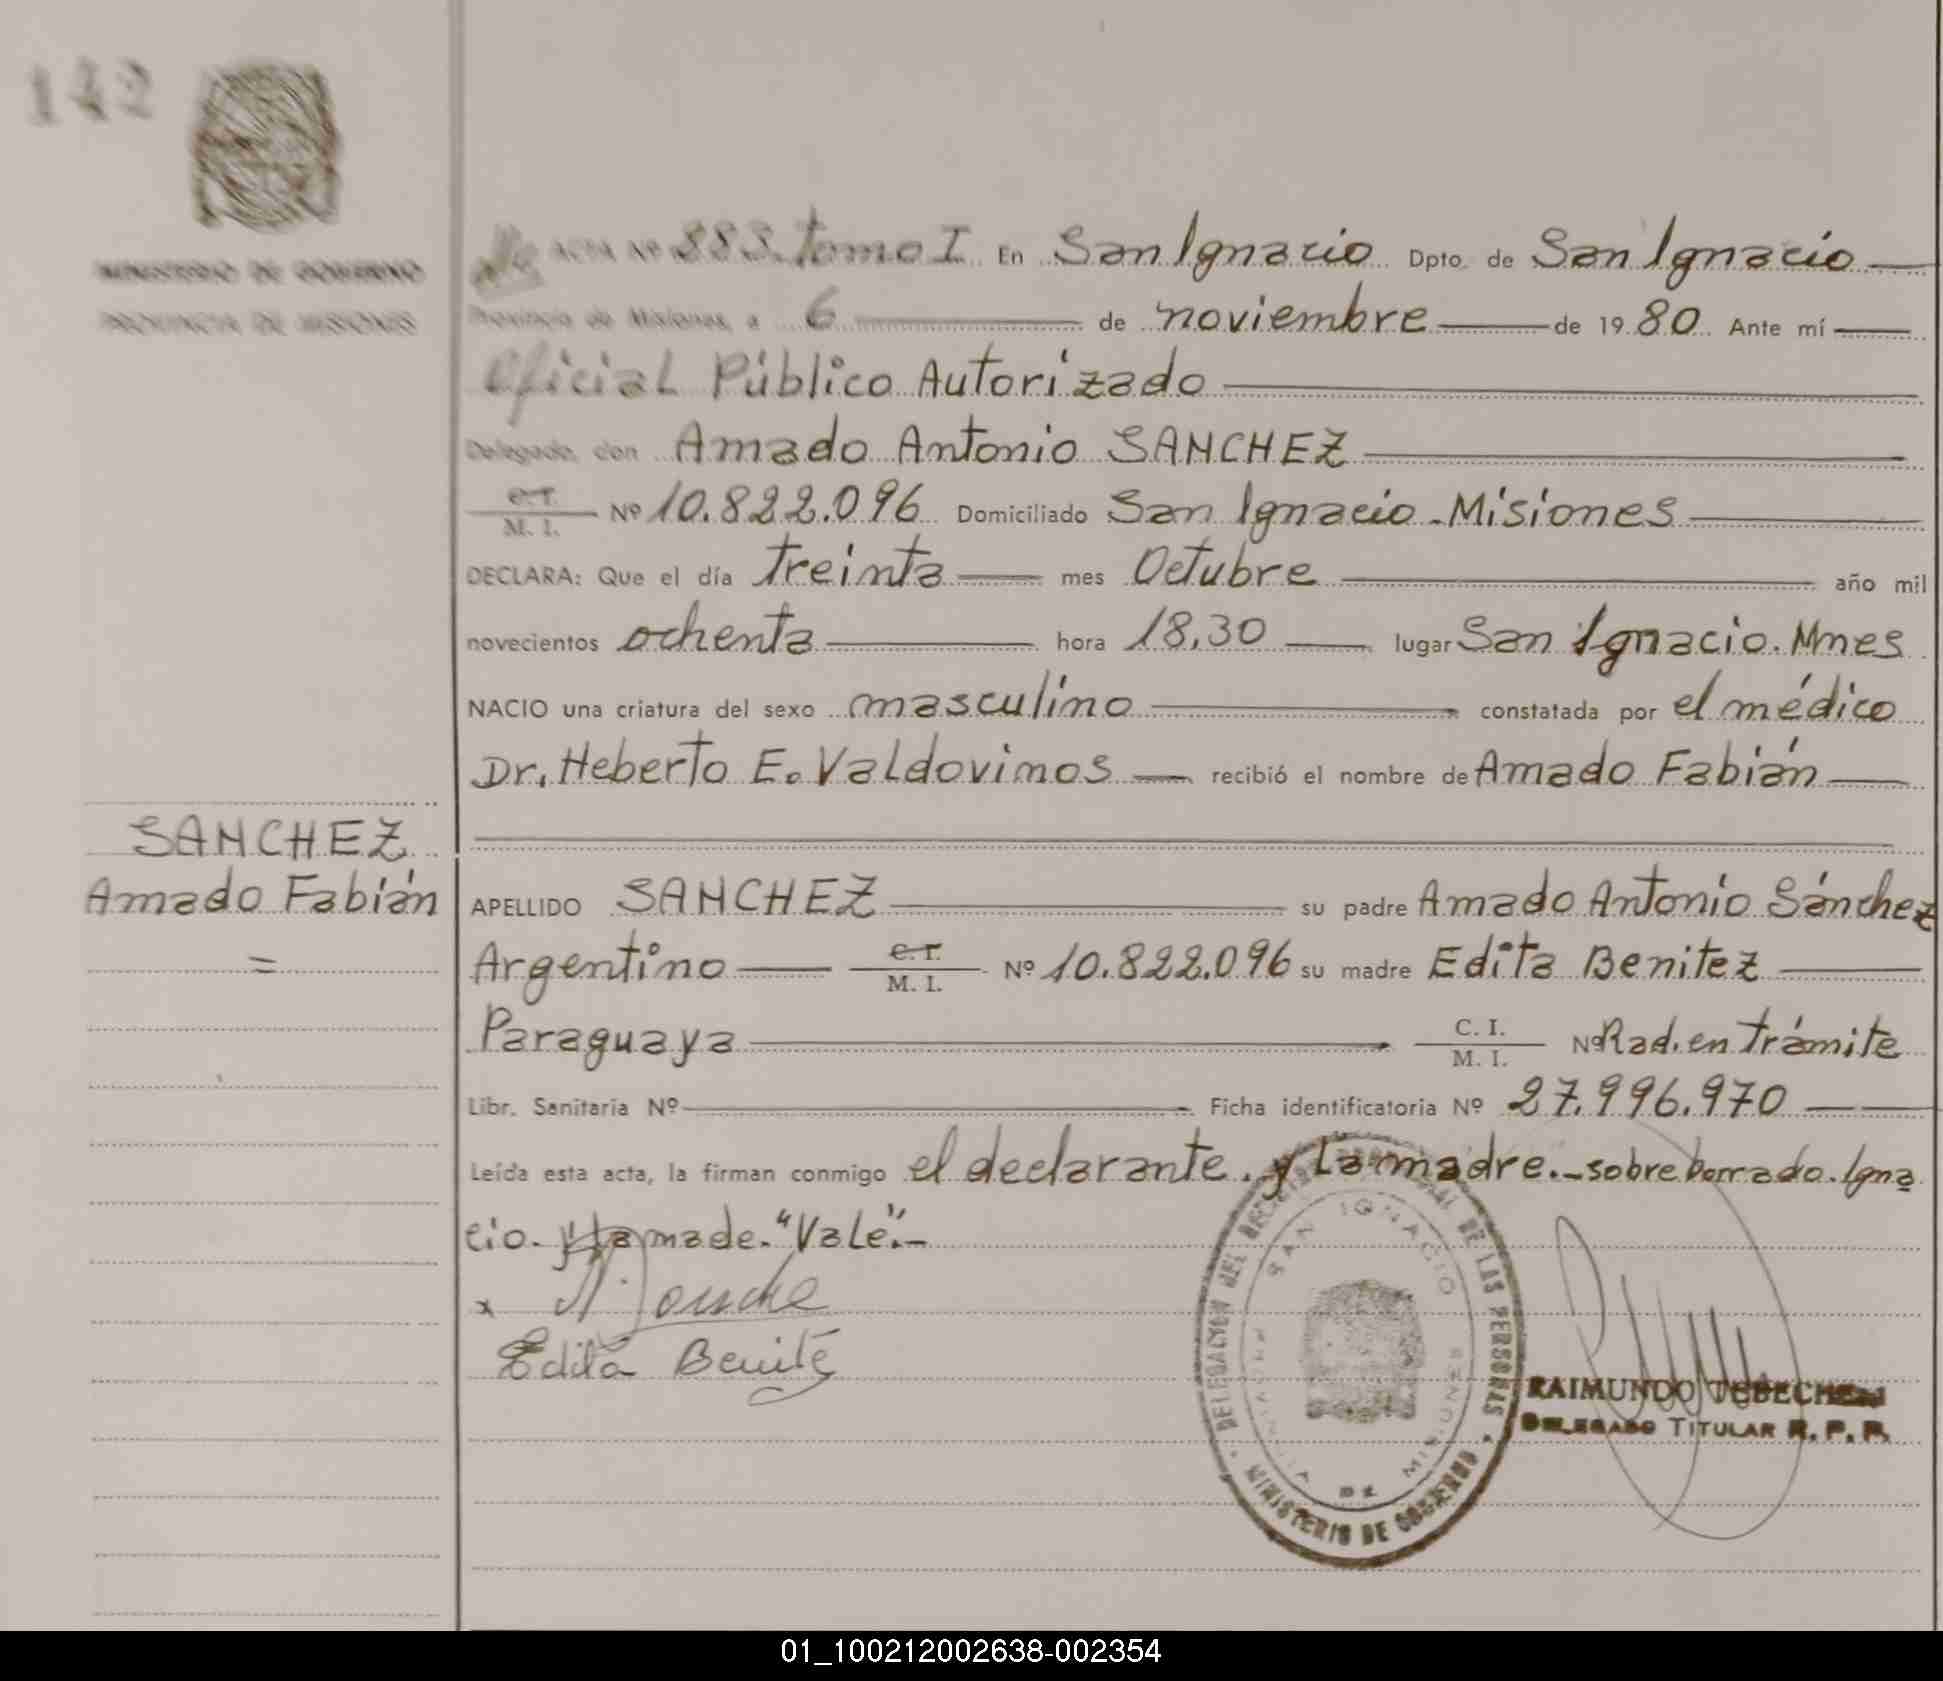 142
MINISTERIO DE GOBIERNO
PROVINCIA DE MISIONES
ACTA Nº 883. tomo I En San Ignacio Dpto. de San Ignacio
Provincia de Misiones, a 6 de noviembre de 1980. Ante mí
Oficial Público Autorizado
Delegado, don Amado Antonio SANCHEZ
C.I.
M. I. Nº 10.822.096 Domiciliado San Ignacio - Misiones
DECLARA: Que el día treinta mes Octubre año mil
novecientos ochenta hora 18,30 lugar San Ignacio. Mnes
NACIO una criatura del sexo masculino constatada por el médico
Dr. Heberto E. Valdovinos recibió el nombre de Amado Fabián
SANCHEZ
Amado Fabián
=
APELLIDO SANCHEZ su padre Amado Antonio Sánchez
Argentino C.I.
M. I. Nº 10.822.096 su madre Edita Benitez
Paraguaya C. I.
M. I. Nº Rad. en trámite
Libr. Sanitaria Nº Ficha identificatoria Nº 27.996.970
Leída esta acta, la firman conmigo el declarante. y la madre.- sobre borrado. Igna
cio. y la made. "Vale".-
x
Edita Benité
DELEGACION DEL REGISTRO PROVINCIAL DE LAS PERSONAS
MINISTERIO DE GOBIERNO
SAN IGNACIO
PROVINCIA DE MISIONES
RAIMUNDO TEBECHEN
DELEGADO TITULAR R. P. P.
01_100212002638-002354